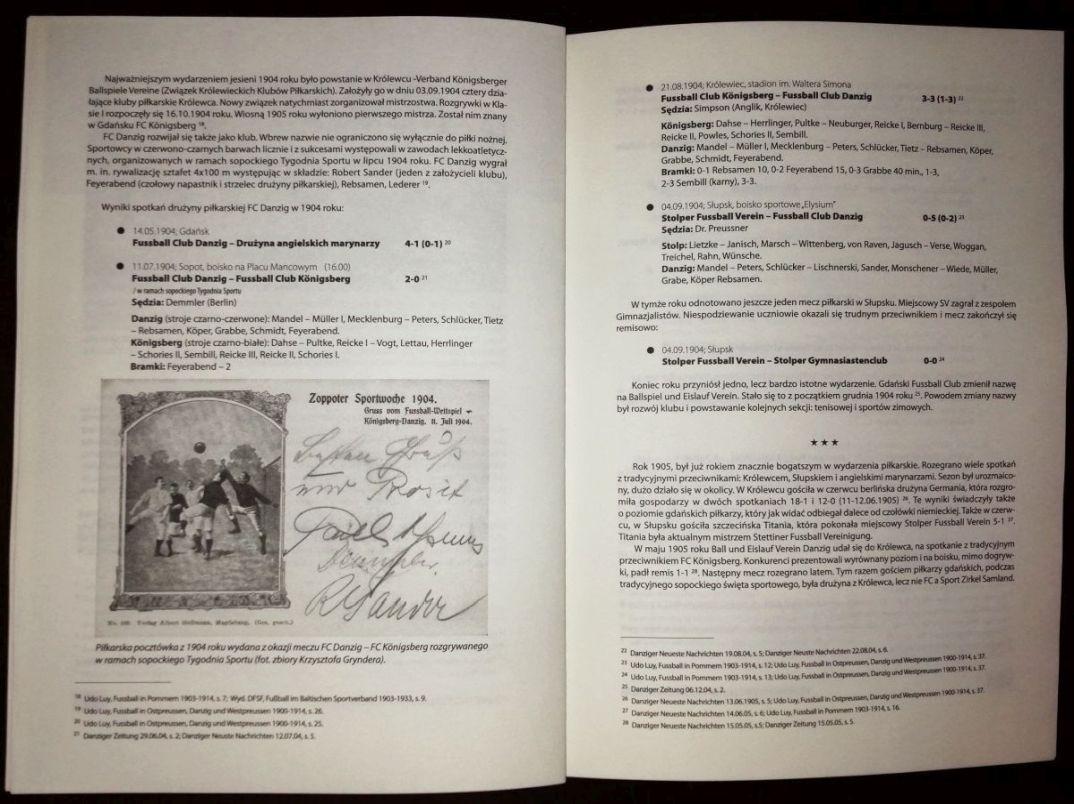 Najważniejszym wydarzeniem jesieni 1904 roku było powstanie w Królewcu -Verband Königsberger
Ballspiele Vereine (Związek Królewieckich Klubów Piłkarskich). Założyły go w dniu 03.09.1904 cztery dzia-
łające kluby piłkarskie Królewca. Nowy związek natychmiast zorganizował mistrzostwa. Rozgrywki w Kla-
sie I rozpoczęły się 16.10.1904 roku. Wiosną 1905 roku wyłoniono pierwszego mistrza. Został nim znany
w Gdańsku FC Königsberg 18.
FC Danzig rozwijał się także jako klub. Wbrew nazwie nie ograniczono się wyłącznie do piłki nożnej.
Sportowcy w czerwono-czarnych barwach licznie i z sukcesami występowali w zawodach lekkoatletycz-
nych, organizowanych w ramach sopockiego Tygodnia Sportu w lipcu 1904 roku. FC Danzig wygrał
m. in. rywalizację sztafet 4x100 m występując w składzie: Robert Sander (jeden z założycieli klubu),
Feyerabend (czołowy napastnik i strzelec drużyny piłkarskiej), Rebsamen, Lederer 19.
Wyniki spotkań drużyny piłkarskiej FC Danzig w 1904 roku:
● 14.05.1904; Gdańsk
Fussball Club Danzig – Drużyna angielskich marynarzy 4-1 (0-1) 20
● 11.07.1904; Sopot, boisko na Placu Mancowym (16.00)
Fussball Club Danzig – Fussball Club Königsberg 2-0 21
/ w ramach sopockiego Tygodnia Sportu
Sędzia: Demmler (Berlin)
Danzig (stroje czarno-czerwone): Mandel – Müller I, Mecklenburg – Peters, Schlücker, Tietz
– Rebsamen, Köper, Grabbe, Schmidt, Feyerabend.
Königsberg (stroje czarno-białe): Dahse – Pultke, Reicke I – Vogt, Lettau, Herrlinger
– Schories II, Sembill, Reicke III, Reicke II, Schories I.
Bramki: Feyerabend – 2
Zoppoter Sportwoche 1904.
Gruss vom Fussball-Wettspiel
Königsberg-Danzig. 11. Juli 1904.
R Sander
Verlag Albert Hoffmann, Magdeburg. (Ges. gesch.)
Piłkarska pocztówka z 1904 roku wydana z okazji meczu FC Danzig – FC Königsberg rozgrywanego
w ramach sopockiego Tygodnia Sportu (fot. zbiory Krzysztofa Gryndera).
18 Udo Luy, Fussball in Pommern 1903-1914, s. 7; Wyd. DFSF, Fußball im Baltischen Sportverband 1903-1933, s. 9.
19 Udo Luy, Fussball in Ostpreussen, Danzig und Westpreussen 1900-1914, s. 26.
20 Udo Luy, Fussball in Ostpreussen, Danzig und Westpreussen 1900-1914, s. 25.
21 Danziger Zeitung 29.06.04, s. 2; Danziger Neuste Nachrichten 12.07.04, s. 5.
● 21.08.1904; Królewiec, stadion im. Waltera Simona
Fussball Club Königsberg – Fussball Club Danzig 3-3 (1-3) 22
Sędzia: Simpson (Anglik, Królewiec)
Königsberg: Dahse – Herrlinger, Pultke – Neuburger, Reicke I, Bernburg – Reicke III,
Reicke II, Powles, Schories II, Sembill.
Danzig: Mandel – Müller I, Mecklenburg – Peters, Schlücker, Tietz – Rebsamen, Köper,
Grabbe, Schmidt, Feyerabend.
Bramki: 0-1 Rebsamen 10, 0-2 Feyerabend 15, 0-3 Grabbe 40 min., 1-3,
2-3 Sembill (karny), 3-3.
● 04.09.1904; Słupsk, boisko sportowe „Elysium”
Stolper Fussball Verein – Fussball Club Danzig 0-5 (0-2) 23
Sędzia: Dr. Preussner
Stolp: Lietzke – Janisch, Marsch – Wittenberg, von Raven, Jagusch – Verse, Woggan,
Treichel, Rahn, Wünsche.
Danzig: Mandel – Peters, Schlücker – Lischnerski, Sander, Monschener – Wiede, Müller,
Grabe, Köper Rebsamen.
W tymże roku odnotowano jeszcze jeden mecz piłkarski w Słupsku. Miejscowy SV zagrał z zespołem
Gimnazjalistów. Niespodziewanie uczniowie okazali się trudnym przeciwnikiem i mecz zakończył się
remisowo:
● 04.09.1904; Słupsk
Stolper Fussball Verein – Stolper Gymnasiastenclub 0-0 24
Koniec roku przyniósł jedno, lecz bardzo istotne wydarzenie. Gdański Fussball Club zmienił nazwę
na Ballspiel und Eislauf Verein. Stało się to z początkiem grudnia 1904 roku 25. Powodem zmiany nazwy
był rozwój klubu i powstawanie kolejnych sekcji: tenisowej i sportów zimowych.
★ ★ ★
Rok 1905, był już rokiem znacznie bogatszym w wydarzenia piłkarskie. Rozegrano wiele spotkań
z tradycyjnymi przeciwnikami: Królewcem, Słupskiem i angielskimi marynarzami. Sezon był urozmaico-
ny, dużo działo się w okolicy. W Królewcu gościła w czerwcu berlińska drużyna Germania, która rozgro-
miła gospodarzy w dwóch spotkaniach 18-1 i 12-0 (11-12.06.1905) 26. Te wyniki świadczyły także
o poziomie gdańskich piłkarzy, który jak widać odbiegał dalece od czołówki niemieckiej. Także w czerw-
cu, w Słupsku gościła szczecińska Titania, która pokonała miejscowy Stolper Fussball Verein 5-1 27.
Titania była aktualnym mistrzem Stettiner Fussball Vereinigung.
W maju 1905 roku Ball und Eislauf Verein Danzig udał się do Królewca, na spotkanie z tradycyjnym
przeciwnikiem FC Königsberg. Konkurenci prezentowali wyrównany poziom i na boisku, mimo dogryw-
ki, padł remis 1-1 28. Następny mecz rozegrano latem. Tym razem gościem piłkarzy gdańskich, podczas
tradycyjnego sopockiego święta sportowego, była drużyna z Królewca, lecz nie FC a Sport Zirkel Samland.
22 Danziger Neueste Nachrichten 19.08.04, s. 5; Danziger Neuste Nachrichten 22.08.04, s. 6.
23 Udo Luy, Fussball in Pommern 1903-1914, s. 12; Udo Luy, Fussball in Ostpreussen, Danzig und Westpreussen 1900-1914, s. 37.
24 Udo Luy, Fussball in Pommern 1903-1914, s. 13; Udo Luy, Fussball in Ostpreussen, Danzig und Westpreussen 1900-1914, s. 37.
25 Danziger Zeitung 06.12.04, s. 2.
26 Danziger Neueste Nachrichten 13.06.1905, s. 5; Udo Luy, Fussball in Ostpreussen, Danzig und Westpreussen 1900-1914, s. 37.
27 Danziger Neueste Nachrichten 14.06.05, s. 6; Udo Luy, Fussball in Pommern 1903-1914, s. 16.
28 Danziger Neueste Nachrichten 15.05.05, s.5; Danziger Zeitung 15.05.05, s. 5.